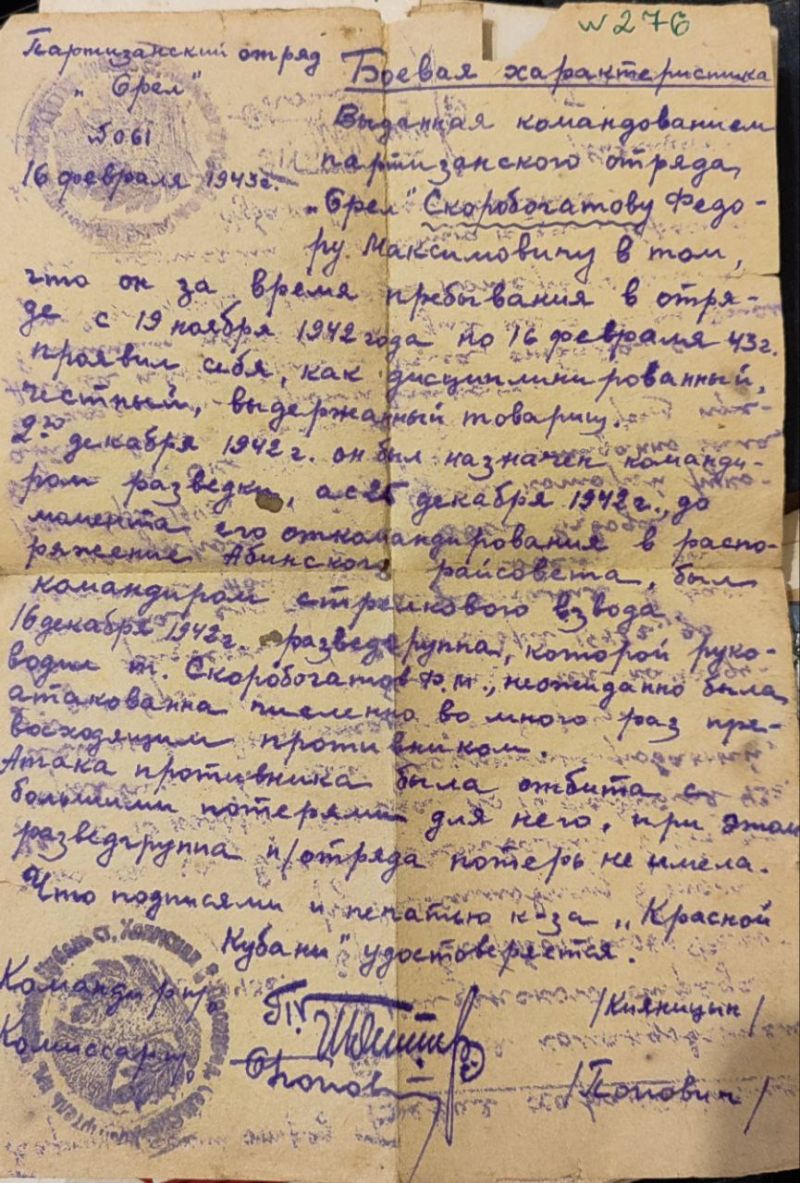 № 276
Партизанский отряд
„Орёл"
№ 061
16 февраля 1943 г.
Боевая характеристика
Выданная командованием
партизанского отряда
„Орел" Скоробогатову Федо-
ру Максимовичу в том,
что он за время пребывания в отря-
де с 19 ноября 1942 года по 16 февраля 43 г.
проявил себя, как дисциплинированный,
честный, выдержанный товарищ.
2го декабря 1942 г. он был назначен команди-
ром разведки, а с 25 декабря 1942 г., до
момента его откомандирования в распо-
ряжение Абинского райсовета, был
командиром стрелкового взвода.
16 декабря 1942 г. разведгруппа, которой руко-
водил т. Скоробогатов Ф.М., неожиданно была
атакованна численно во много раз пре-
восходящим противником.
Атака противника была отбита с
большими потерями для него, при этом
разведгруппа п/отряда потерь не имела.
Что подписями и печатью к-за „Красной
Кубани" удостоверяется.
Командир п/о
/Кияницын/
Комиссар п/о
/Попович/